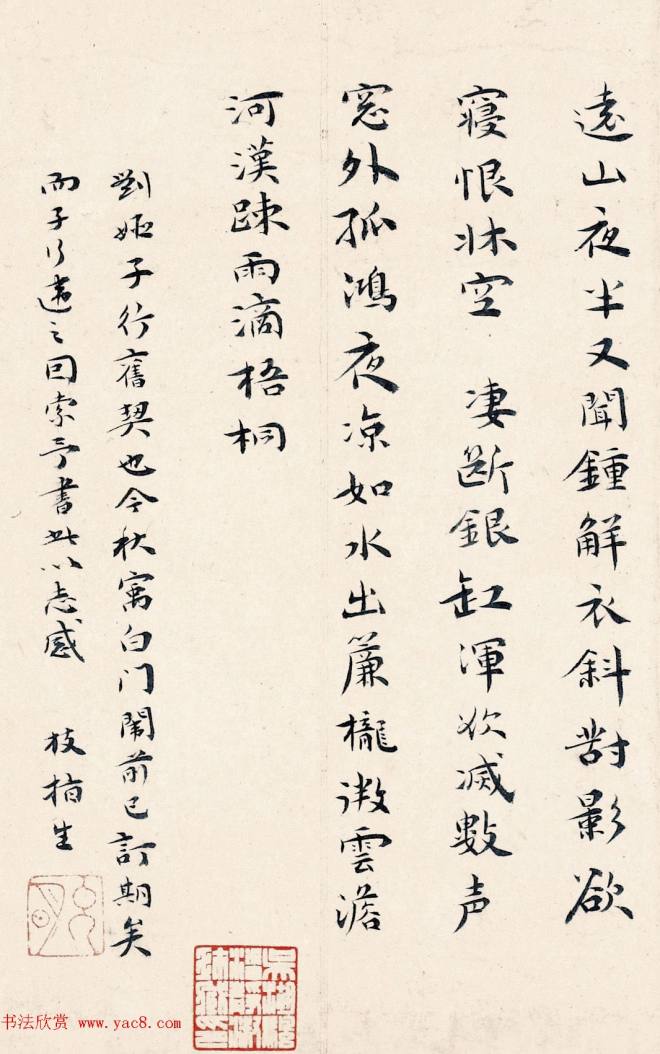 遠山夜半又聞鍾解衣斜對影欲
寝恨牀空 凄斷銀缸渾欲滅數声
窓外孤鴻夜凉如水出簾櫳微雲澹
河漢踈雨滴梧桐
劉姬子行舊契也今秋寓白门闈前已訂期矣
而子行違之因索予書此以志感 枝指生
书法欣赏 www.yac8.com